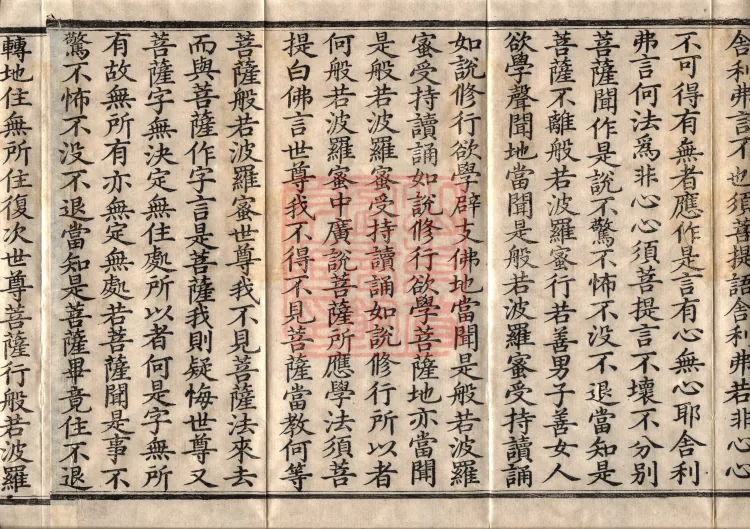 舍利弗言不也須菩提語舍利弗若非心心
不可得有無者應作是言有心無心耶舍利
弗言何法爲非心心須菩提言不壞不分別
菩薩聞作是說不驚不怖不没不退當知是
菩薩不離般若波羅蜜行若善男子善女人
欲學聲聞地當聞是般若波羅蜜受持讀誦
如說修行欲學辟支佛地當聞是般若波羅
蜜受持讀誦如說修行欲學菩薩地亦當聞
是般若波羅蜜受持讀誦如說修行所以者
何般若波羅蜜中廣說菩薩所應學法須菩
提白佛言世尊我不得不見菩薩當教何等
菩薩般若波羅蜜世尊我不見菩薩法來去
而與菩薩作字言是菩薩我則疑悔世尊又
菩薩字無決定無住處所以者何是字無所
有故無所有亦無定無處若菩薩聞是事不
驚不怖不没不退當知是菩薩畢竟住不退
轉地住無所住復次世尊菩薩行般若波羅